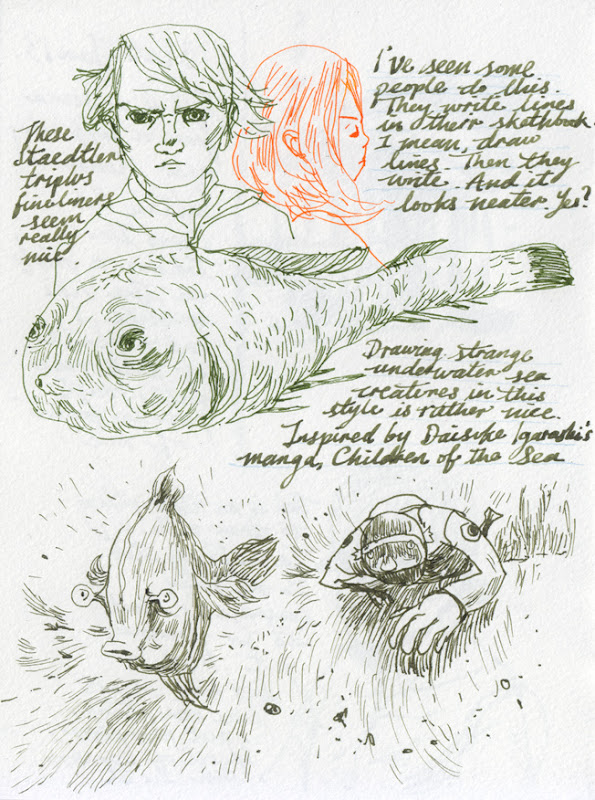 I've seen some
people do this.
They write lines
in therr skethbook.
I mean, draw
lines. Then they
write. And it
looks neater. Yes?
These
Staedtler
triplus
fineliners
seem
really
nice.
Drawing strange
underwater sea
creatures in this
style is rather nice.
Inspired by Daisuke Igarashi's
manga, Children of the Sea